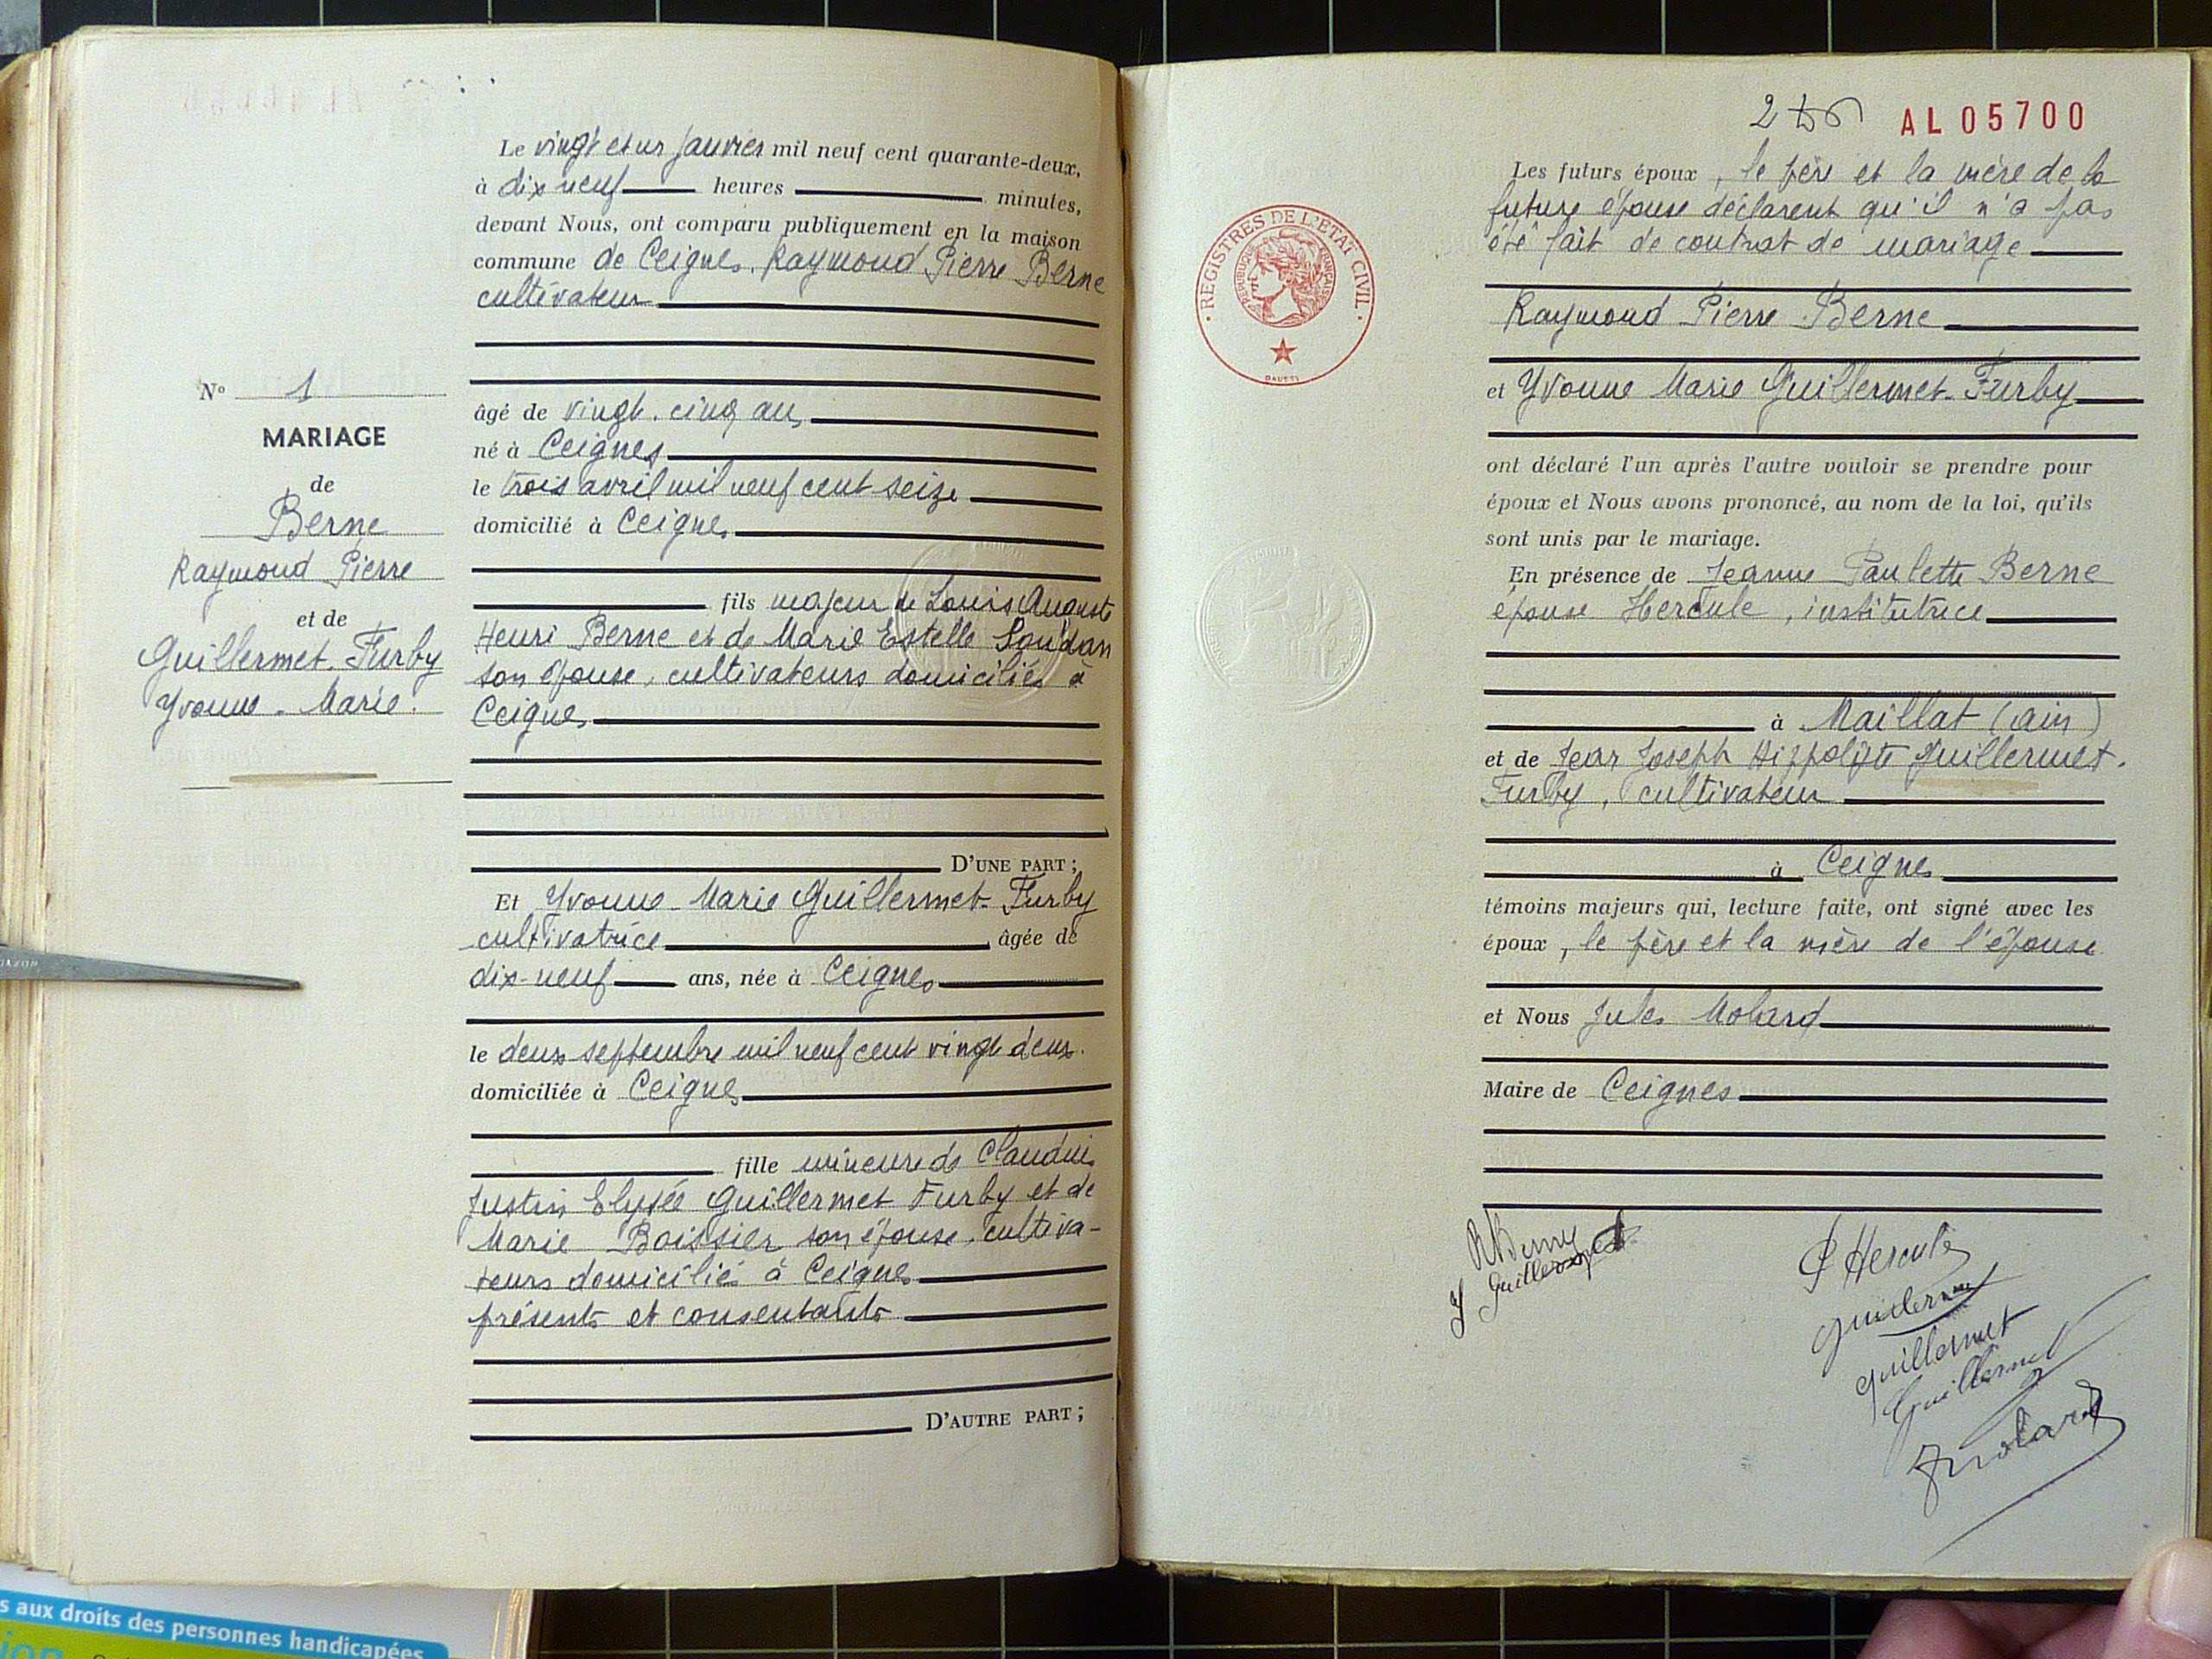 N° 1
MARIAGE
de
Berne
Raymond Pierre
et de
Guillermet-Furby
Yvonne-Marie.
Le vingt et un janvier mil neuf cent quarante-deux,
à dix neuf heures minutes,
devant Nous, ont comparu publiquement en la maison
commune de Ceignes, Raymond Pierre Berne
cultivateur
âgé de vingt-cinq ans
né à Ceignes
le trois avril mil neuf cent seize
domicilié à Ceignes
fils majeur de Louis Auguste
Henri Berne et de Marie Estelle Soudan
son épouse, cultivateurs domiciliés à
Ceignes
D'UNE PART;
Et Yvonne-Marie Guillermet-Furby
cultivatrice âgée de
dix-neuf ans, née à Ceignes
le deux septembre mil neuf cent vingt deux.
domiciliée à Ceignes
fille mineure de Claudius
Justin Elysée Guillermet Furby et de
Marie Boissier son épouse, cultiva-
teurs domiciliés à Ceignes
présents et consentants
D'AUTRE PART;
AL05700
REGISTRES DE L'ETAT CIVIL
REPUBLIQUE FRANÇAISE
Les futurs époux, le père et la mère de la
future épouse déclarent qu'il n'a pas
été fait de contrat de mariage
Raymond Pierre Berne
et Yvonne Marie Guillermet-Furby
ont déclaré l'un après l'autre vouloir se prendre pour
époux et Nous avons prononcé, au nom de la loi, qu'ils
sont unis par le mariage.
En présence de Jeanne Paulette Berne
épouse Hercule, institutrice
à Maillat (Ain)
et de Jean Joseph Hippolyte Guillermet-
Furby, cultivateur
à Ceignes
témoins majeurs qui, lecture faite, ont signé avec les
époux, le père et la mère de l'épouse
et Nous Jules Molard
Maire de Ceignes
R Berne
Y Guillermet
P Hercule
Guillermet
Guillermet
Guillermet
Molard
s aux droits des personnes handicapées